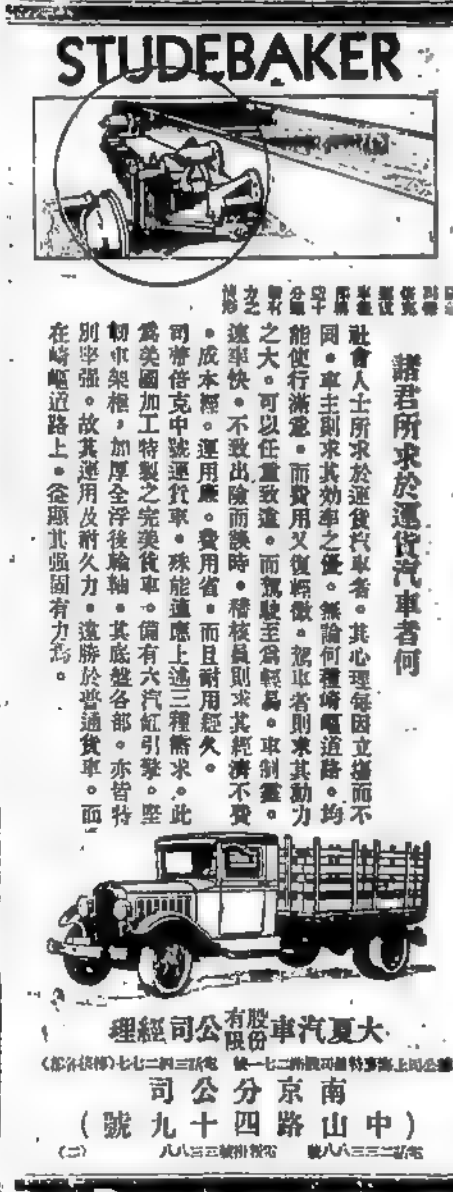 STUDEBAKER
諸君所求於運貨汽車者何
社會人士所求於運貨汽車者。其心理每因立塲而不
同。車主則求其效率之優。無論何種崎嶇道路。均
能使行滿意。而費用又復輕微。駕車者則求其動力
之大。可以任重致遠。而駕駛至爲輕易。車制靈。
速率快。不致出險而誤時。稽核員則求其經濟不費
。成本輕。運用廉。費用省。而且耐用經久。
司蒂倍克中號運貨車。殊能適應上述三種需求。此
爲美國加工特製之完美貨車。備有六汽缸引擎。堅
韌車架樑,加厚全浮後輪軸。其底盤各部。亦皆特
別牢强。故其運用及耐久力。遠勝於普通貨車。而
在崎嶇道路上。益顯其强固有力焉。
大夏汽車股份有限公司經理
南京分公司
(中山路四十九號)
電話二三三八八號 電報掛號五三八八 (二)